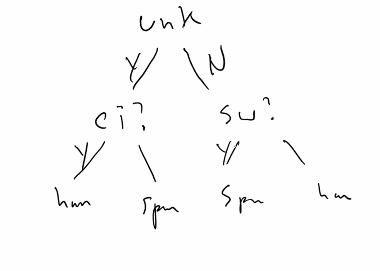 unk
Y N
ci? su?
Y Y
ham spm spm ham